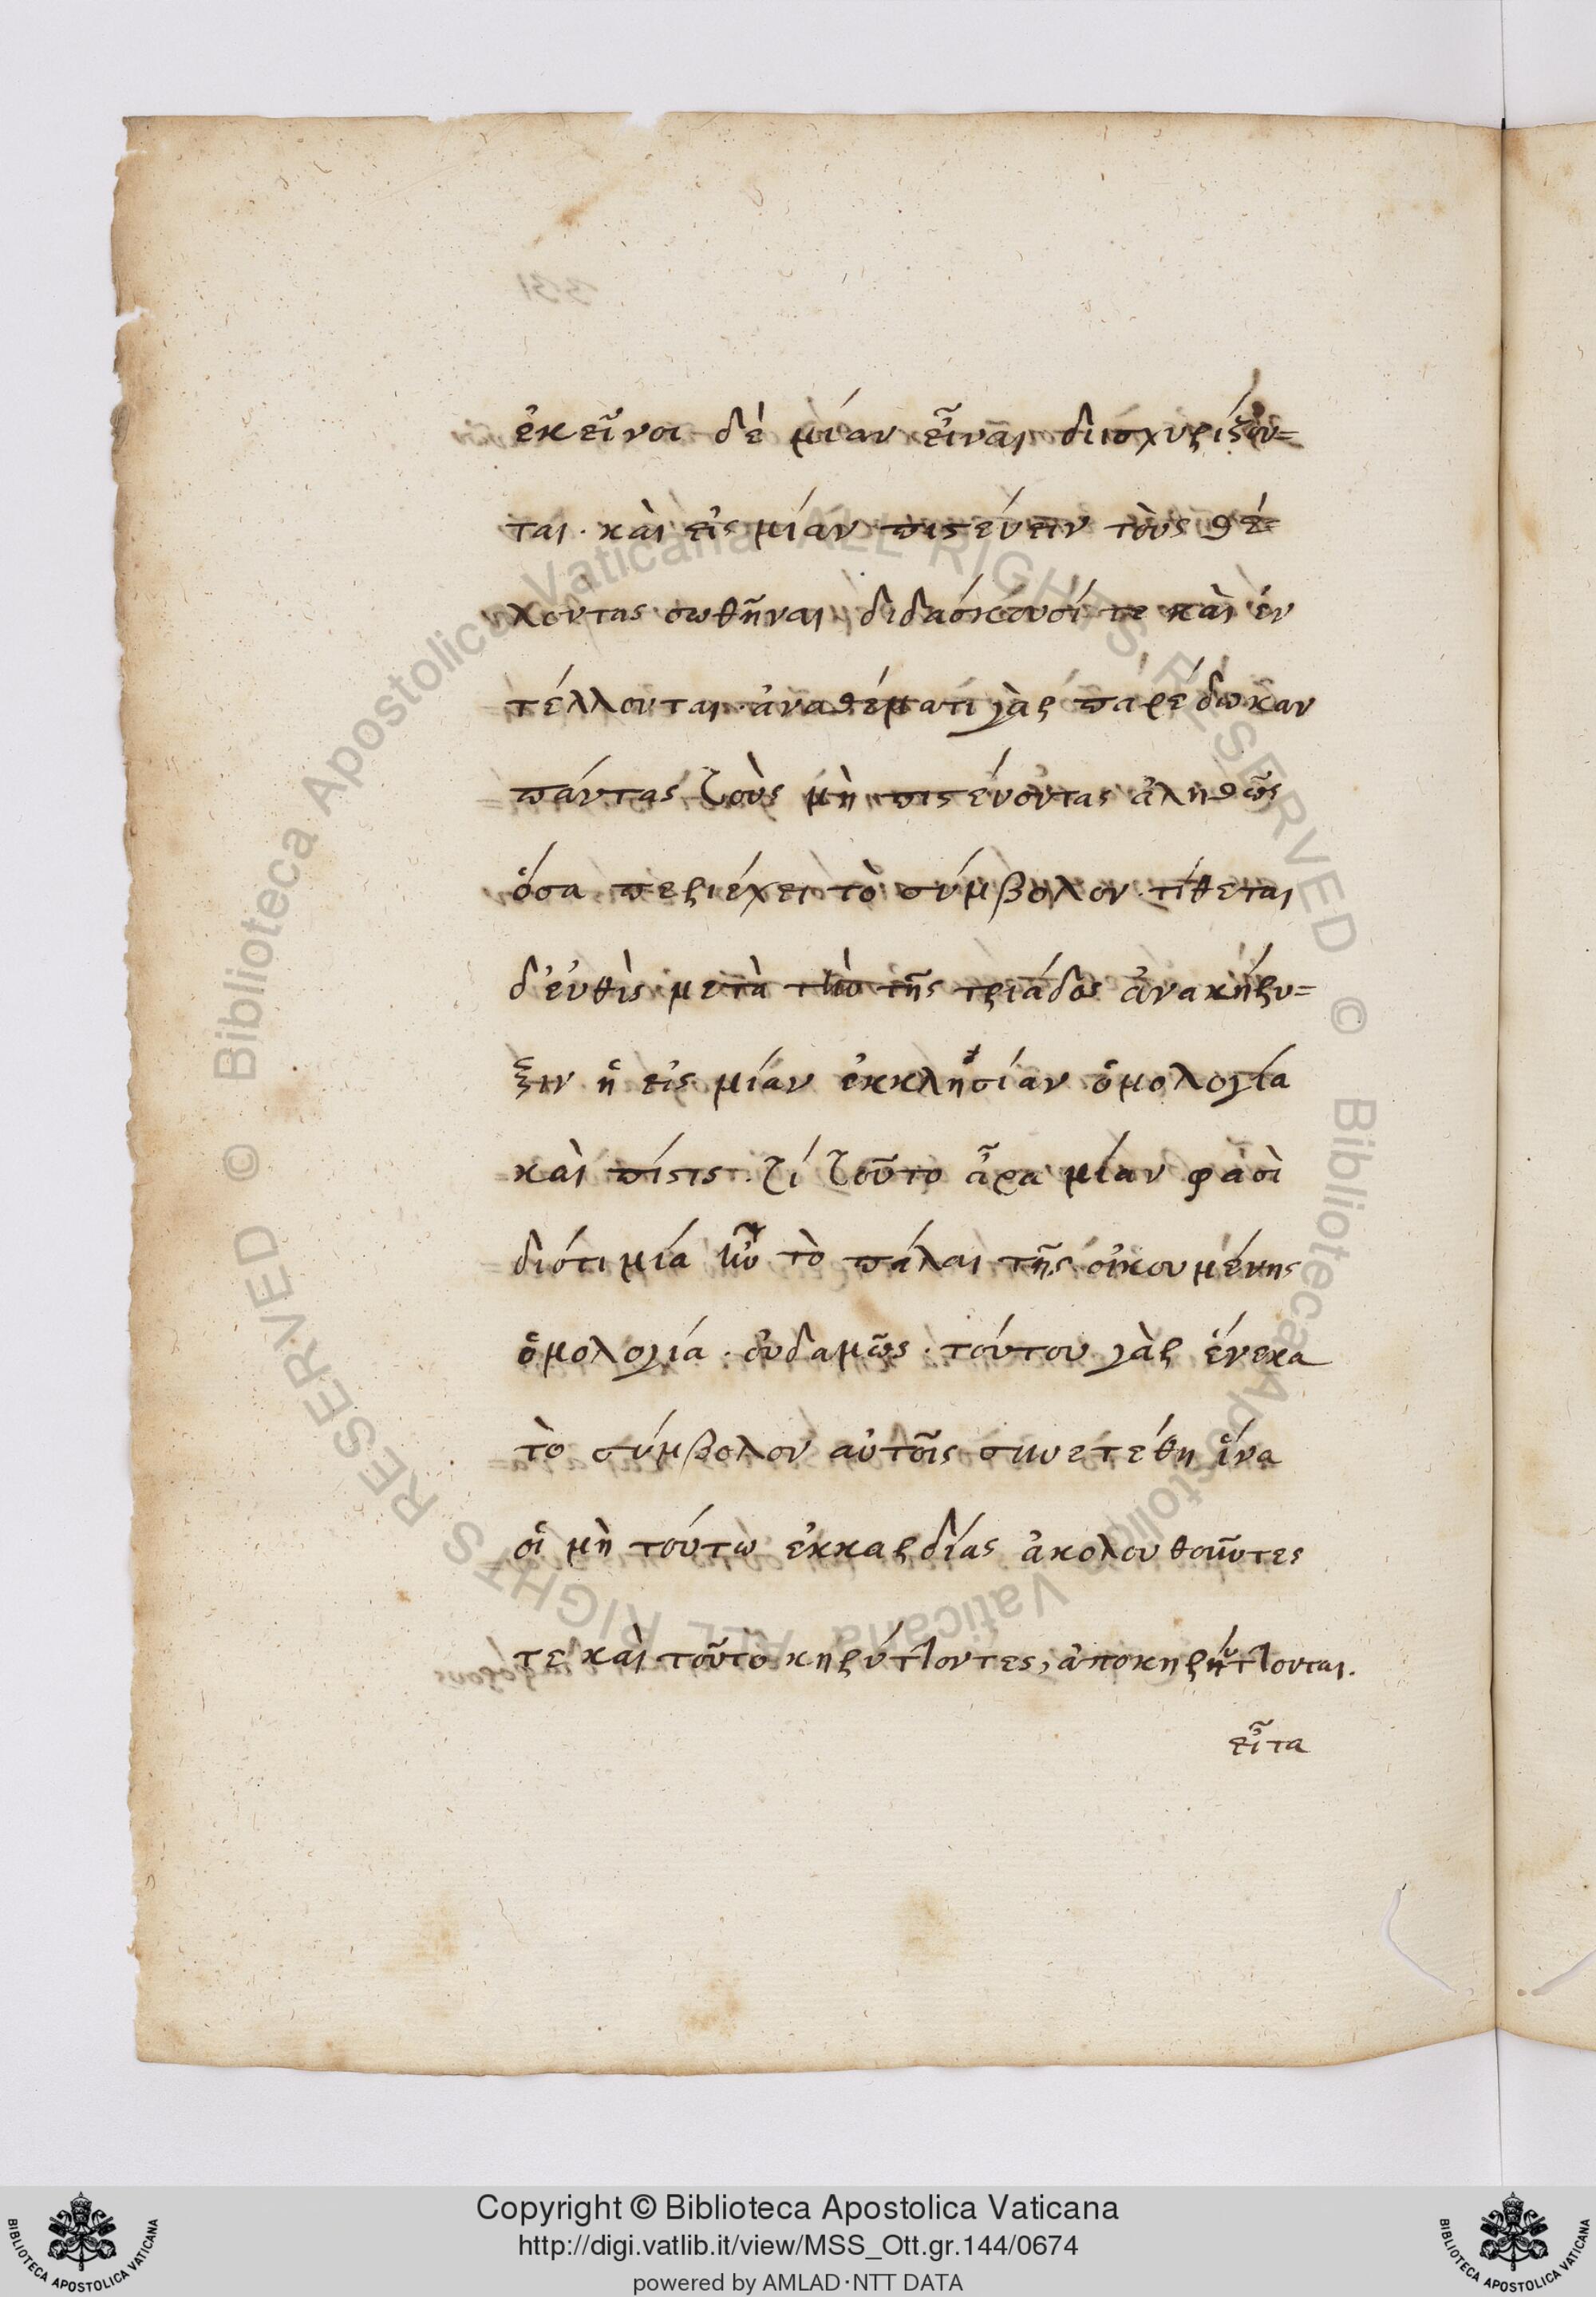 ἐκεῖνοι δὲ μίαν εἶναι διισχυρίζον=
ται· καὶ εἰς μίαν πιστεύειν τοὺς θέ=
λοντας σωθῆναι διδάσκουσί τε καὶ ἐν
τέλλονται· ἀναθέματι γὰρ παρέδωκαν
πάντας τοὺς μὴ πιστεύοντας ἀληθῶς
ὅσα περιέχει τὸ σύμβολον· τίθεται
δ' εὐθὺς μετὰ τὴν τῆς τριάδος ἀνακήρυ=
ξιν ἡ εἰς μίαν ἐκκλησίαν ὁμολογία
καὶ πίστις· τί τοῦτο ἆρα μίαν φασὶ
διότι μία ἦν τὸ πάλαι τῆς οἰκουμένης
ὁμολογία· οὐδαμῶς· τούτου γὰρ ἕνεκα
τὸ σύμβολον αὐτοῖς συνετέθη ἵνα
οἱ μὴ τούτω ἐκκαρδίας ἀκολουθοῦντες
τε καὶ τοῦτο κηρύττοντες, ἀποκηρύττονται.
εἶτα
Copyright © Biblioteca Apostolica Vaticana
http://digi.vatlib.it/view/MSS_Ott.gr.144/0674
powered by AMLAD·NTT DATA
BIBLIOTECA APOSTOLICA VATICANA
BIBLIOTECA APOSTOLICA VATICANA
© Biblioteca Apostolica Vaticana ALL RIGHTS RESERVED
© Biblioteca Apostolica Vaticana ALL RIGHTS RESERVED